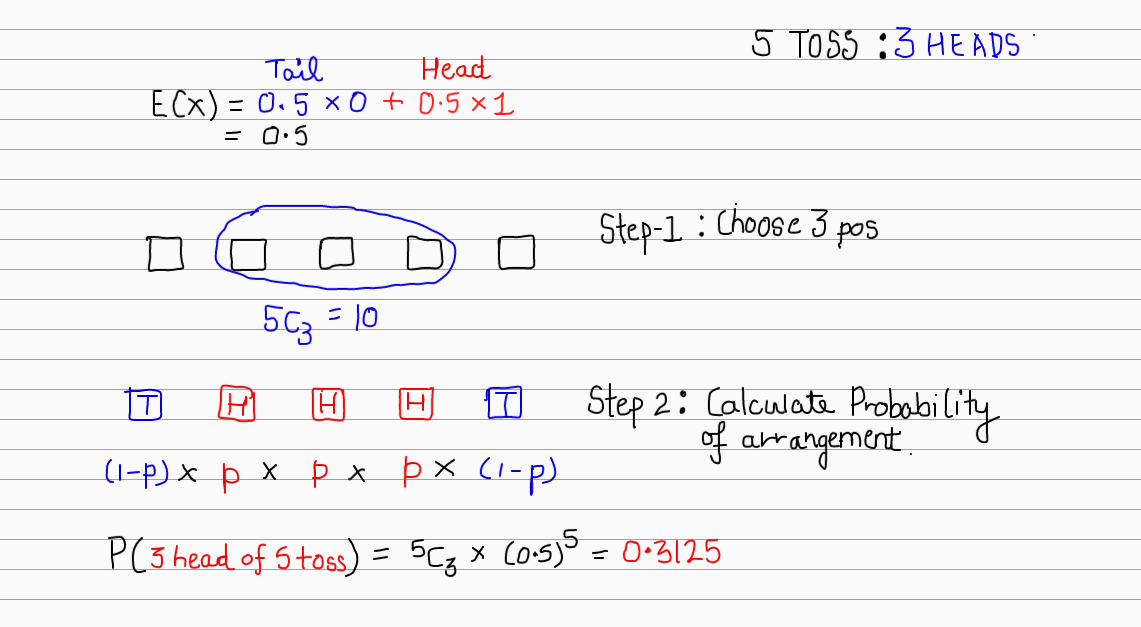 5 TOSS : 3 HEADS
Tail Head
E(x) = 0.5 × 0 + 0.5 × 1
= 0.5
Step-1 : Choose 3 pos
5C₃ = 10
T H H H T
Step 2: Calculate Probability
of arrangement.
(1-p) × p × p × p × (1-p)
P(3 head of 5 toss) = ⁵C₃ × (0.5)⁵ = 0.3125